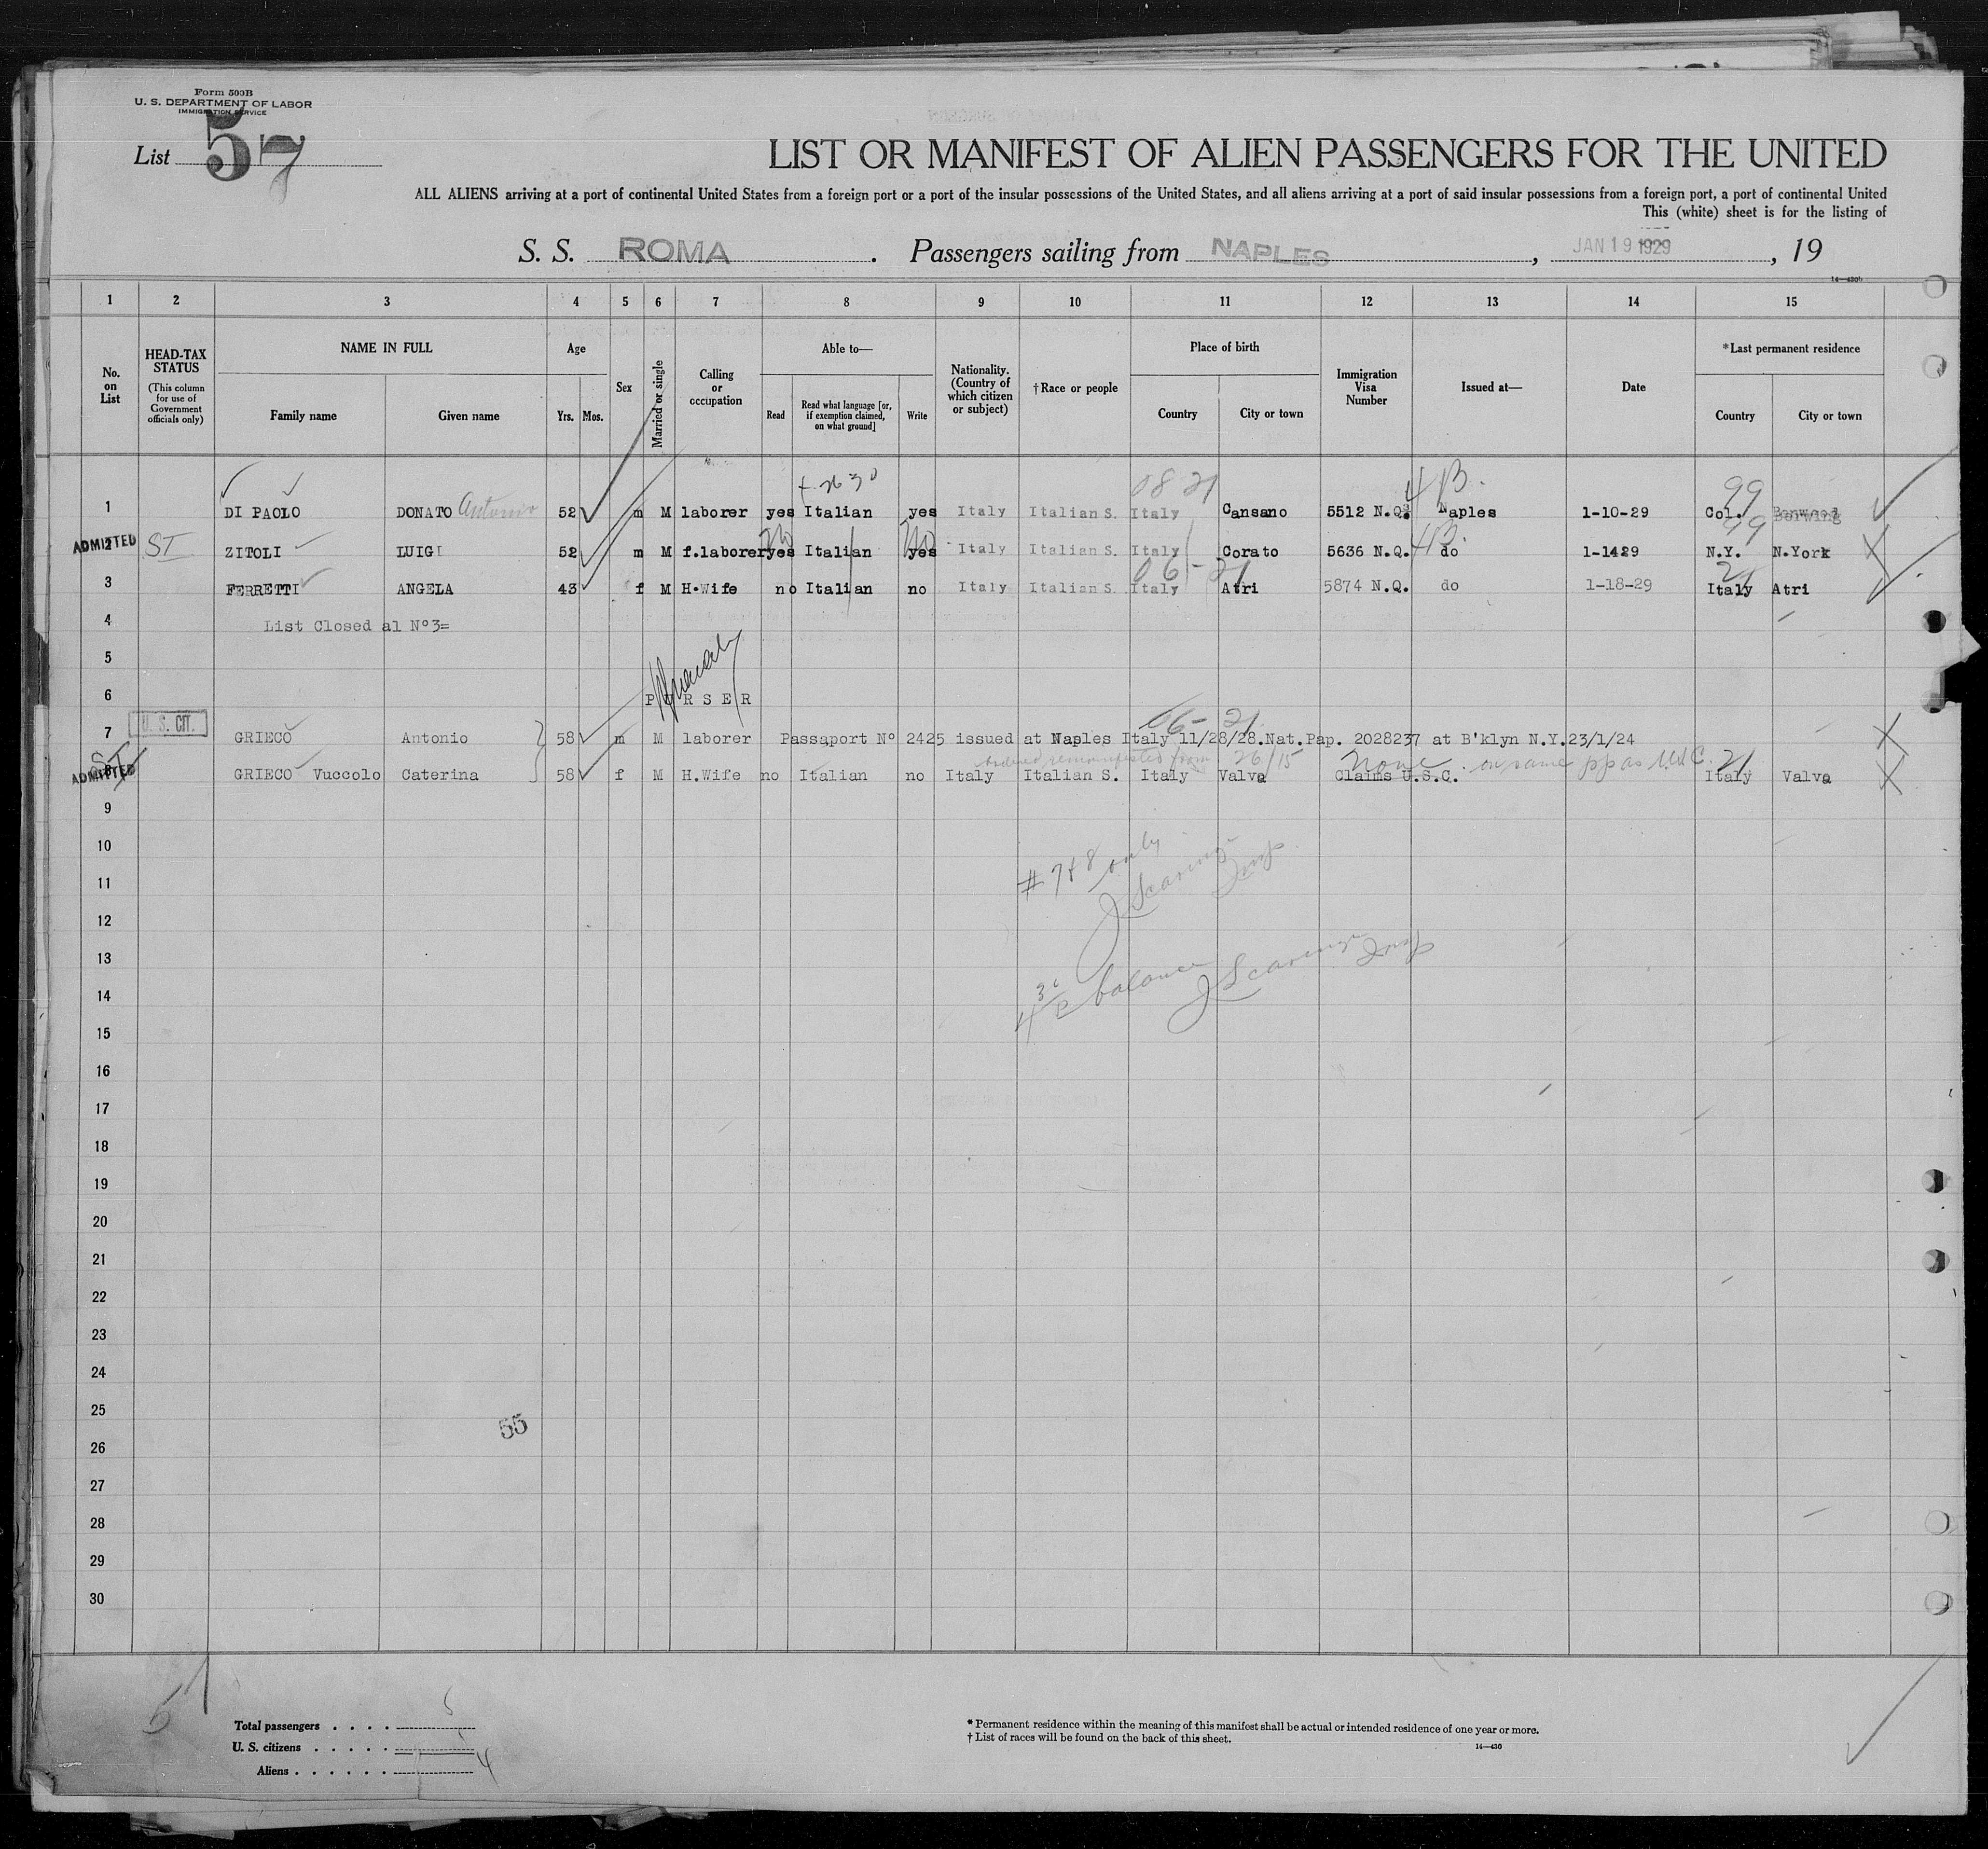 Form 500B
U. S. DEPARTMENT OF LABOR
IMMIGRATION SERVICE
List 57
LIST OR MANIFEST OF ALIEN PASSENGERS FOR THE UNITED
ALL ALIENS arriving at a port of continental United States from a foreign port or a port of the insular possessions of the United States, and all aliens arriving at a port of said insular possessions from a foreign port, a port of continental United
This (white) sheet is for the listing of
S. S. ROMA. Passengers sailing from NAPLES, JAN 19 1929, 19
1 2 3 4 5 6 7 8 9 10 11 12 13 14 15
No. on List
HEAD-TAX STATUS (This column for use of Government officials only)
NAME IN FULL
Family name Given name
Age
Yrs. Mos.
Sex
Married or single
Calling or occupation
Able to—
Read Read what language [or, if exemption claimed, on what ground] Write
Nationality. (Country of which citizen or subject)
†Race or people
Place of birth
Country City or town
Immigration Visa Number
Issued at—
Date
*Last permanent residence
Country City or town
08 21 4 B. 99
1 DI PAOLO DONATO Antonio 52 m M laborer yes Italian yes Italy Italian S. Italy Cansano 5512 N.Q. Naples 1-10-29 Col.
99
ADMITTED 2 ST ZITOLI LUIGI 52 m M f.laborer yes no Italian yes no Italy Italian S. Italy Corato 5636 N.Q. 4B. do 1-1429 N.Y. N.York
06-21 21
3 FERRETTI ANGELA 43 f M H.Wife no Italian no Italy Italian S. Italy Atri 5874 N.Q. do 1-18-29 Italy Atri
4 List Closed al Nº3=
5
6 PURSER
06-21
7 U. S. CIT. GRIECO Antonio 58 m M laborer Passaport Nº 2425 issued at Naples Italy 11/28/28.Nat.Pap. 2028237 at B'klyn N.Y.23/1/24
remanifested from 26/15 None on same pp as U.S.C. 21
ADMITTED 8 ST GRIECO Vuccolo Caterina 58 f M H.Wife no Italian no Italy Italian S. Italy Valva Claims U.S.C. Italy Valva
9
10
# 7 & 8 only
11
J Scaringi Insp
12
13
balance J Scaringi Insp
14
15
16
17
18
19
20
21
22
23
24
25
55
26
27
28
29
30
5
Total passengers . . . . 5
U. S. citizens . . . . . 1
Aliens . . . . . . 4
* Permanent residence within the meaning of this manifest shall be actual or intended residence of one year or more.
† List of races will be found on the back of this sheet.
14—430